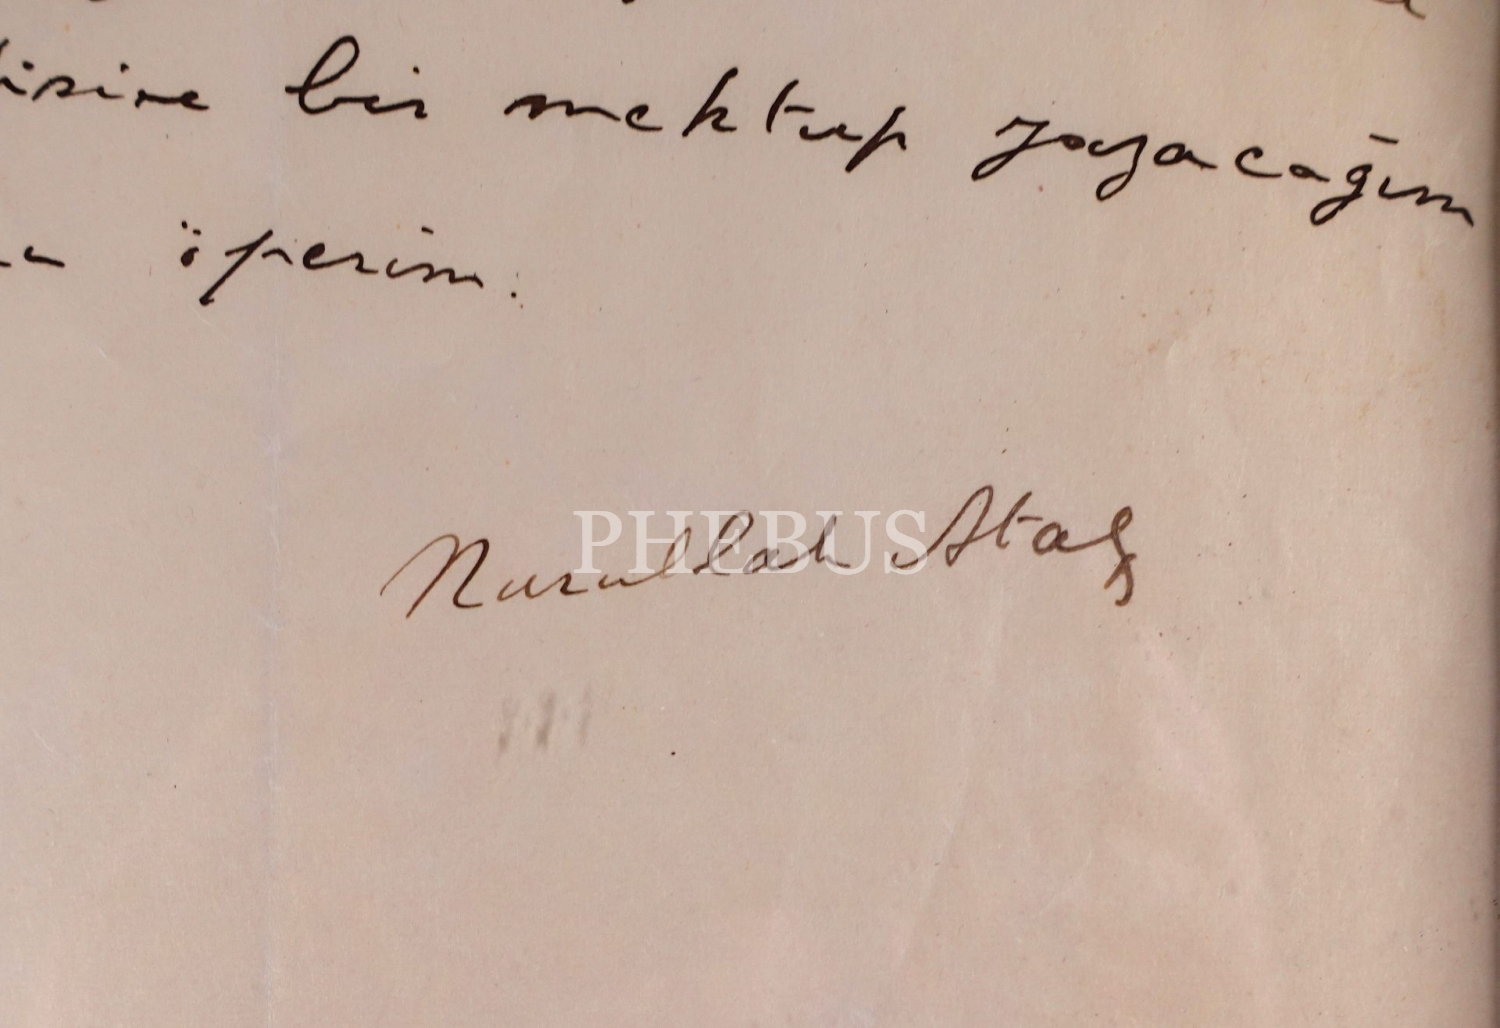 bir mektup yazacağım
öperim.
Nurullah Ataç
PHEBUS